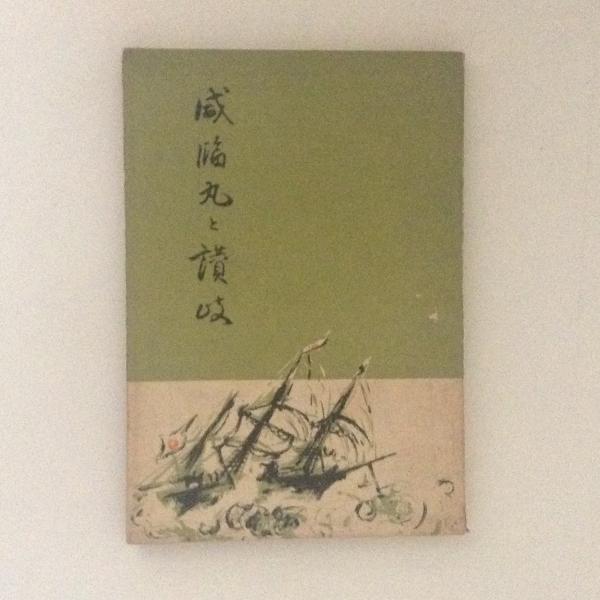 咸臨丸と讃岐